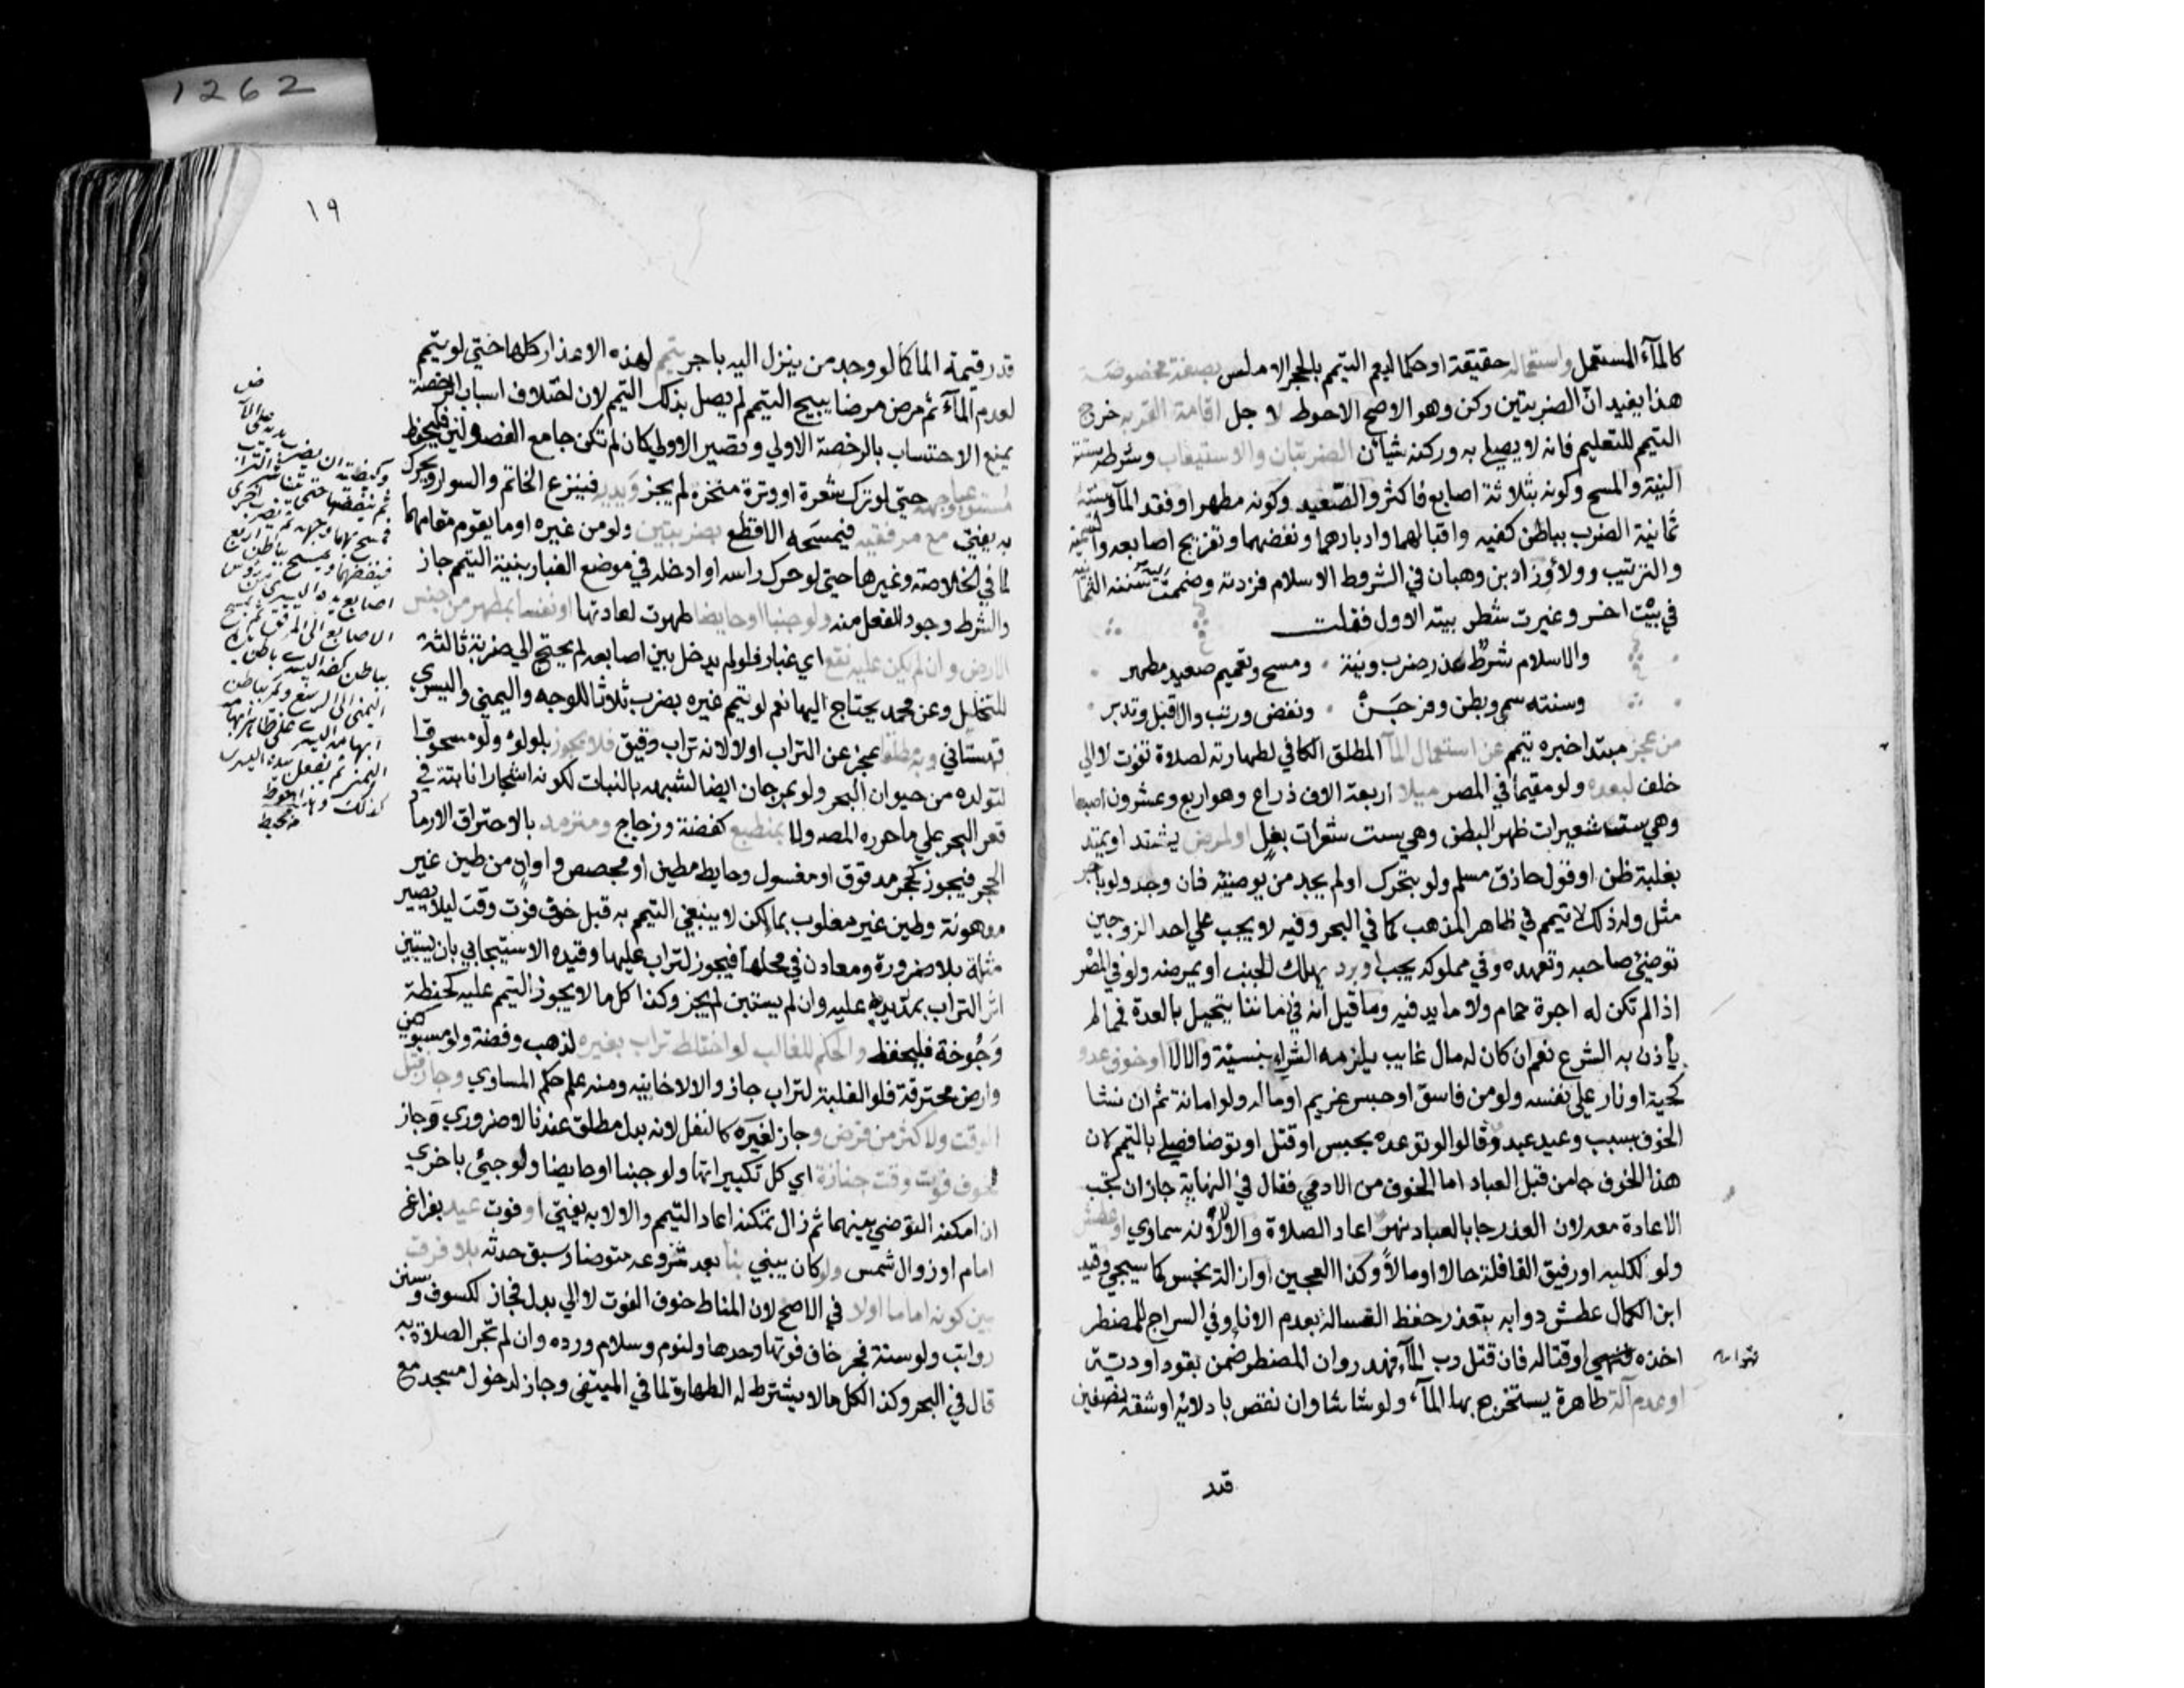 1262
كالماء المستعمل واستعماله حقيقة او حكما ليعم التيمم بالحجر الاملس بصفة مخصوصة
هذا يفيد ان الضربتين ركن وهو الاصح الاحوط لاجل اقامة القربة خرج
التيمم للتعليم فانه لا يصلي به وركنه شيئان الضربتان والاستيعاب وشرطه ستة
النية والمسح وكونه بثلاثة اصابع فاكثر والصعيد وكونه مطهرا وفقد الماء وسننه
ثمانية الضرب بباطن كفيه واقبالهما وادبارهما ونفضهما وتفريج اصابعه والتسمية
والترتيب والولاء وزاد بن وهبان في الشروط الاسلام فزدته وضممت سننه الثمانية
في بيت اخر وغيرت شطر بيته الاول فقلت
والاسلام شرط عذر ضرب ونية ومسح وتعميم صعيد مطهر
وسننه سم وبطن وفرجن ونفض ورتب وال اقبل وتدبر
من عجز مبتدا خبره تيمم عن استعمال الماء المطلق الكافي لطهارته لصلاة تفوت لا الي
خلف لبعده ولو مقيما في المصر ميلا اربعة الاف ذراع وهو اربع وعشرون اصبعا
وهي ست شعيرات ظهر البطن وهي ست شعرات بغل او لمرض يشتد او يمتد
بغلبة ظن او قول حاذق مسلم ولو بتحرك او لم يجد من يوضئه فان وجد ولو باجر
مثل وله ذلك لا تيمم في ظاهر المذهب كما في البحر وفيه لا يجب علي احد الزوجين
توضئ صاحبه وتعهده وفي مملوكه يجب او برد يهلك الجنب او يمرضه ولو في المصر
اذا لم تكن له اجرة حمام ولا ما يدفيه وما قيل انه في زماننا يتحيل بالعدة فمما لم
ياذن به الشرع نعم ان كان له مال غايب يلزمه الشراء بنسيئة والا لا او خوف عدو
كحية او نار علي نفسه ولو من فاسق او حبس غريم او ماله ولو امانة ثم ان نشا
الخوف بسبب وعيد عبد وقالوا لو توعده بحبس او قتل او توضا فصلي بالتيمم لان
هذا الخوف جا من قبل العباد اما الخوف من الادمي فقال في النهاية جاز ان تجب
الاعادة معه لان العذر جا بالعباد نهر اعاد الصلاة والا لا لانه سماوي او عطش
ولو لكلبه او رفيق القافلة حالا او مالا وكذا العجين او ازالة نجس كما سيجي وقيد
ابن الكمال عطش دوابه بتعذر حفظ الغسالة بعدم الاناء وفي السراج للمضطر
اخذه وقتاله فان قتل رب الماء فهدر وان المضطر ضمن بقود او دية
او عدم آلة طاهرة يستخرج بها الماء ولو شاشا وان نقص بادلائه او شقه نصفين
قدر
١٩
قدر قيمة الماء كما لو وجد من ينزل اليه باجر تيمم لهذه الاعذار كلها حتي لو تيمم
لعدم الماء ثم مرض مرضا يبيح التيمم لم يصل بذلك التيمم لان اختلاف اسباب الرخصة
يمنع الاحتساب بالرخصة الاولي وتصير الاولي كان لم تكن جامع الفصولين فليحفظ
مستوعبا وجهه حتي لو ترك شعرة او وترة منخره لم يجز ويديه فينزع الخاتم والسوار ويحرك
به يفتي مع مرفقيه فيمسحه الاقطع بضربتين ولو من غيره او ما يقوم مقامهما
لما في الخلاصة وغيرها حتي لو حرك راسه او ادخله في موضع الغبار بنية التيمم جاز
والشرط وجود الفعل منه ولو جنبا او حايضا طهرت لعادتها او نفسا بمطهر من جنس
الارض وان لم يكن عليه نقع اي غبار فلو لم يدخل بين اصابعه لم يحتج الي ضربة ثالثة
للتخلل وعن محمد يحتاج اليها نعم لو تيمم غيره يضرب ثلاثا للوجه واليمني واليسري
قهستاني وبه مطلقا عجز عن التراب او لا لانه تراب رقيق فلا يجوز بلولوء ولو مسحوقا
لتولده من حيوان البحر ولو بمرجان ايضا لشبهه بالنبات لكونه اشجارا نابتة في
قعر البحر علي ما حرره المصه ولا بمنطبع كفضة وزجاج ومترمد بالاحتراق الا رماد
الحجر فيجوز كحجر مدقوق او مغسول وحايط مطين او مجصص واوان من طين غير
مدهونة وطين غير مغلوب بما لكن لا ينبغي التيمم به قبل خوف فوت وقت ليلا يصير
مثلة بلا ضرورة ومعادن في محلها فيجوز لتراب عليها وقيده الاسبيجابي بان يستبين
اثر التراب بمد يده عليه وان لم يستبن لم يجز وكذا كل ما لا يجوز التيمم عليه كحنطة
وجوخة فليحفظ والحكم للغالب لو اختلط تراب بغيره لذهب وفضة ولو مسبوكين
وارض محترقة فلو الغلبة لتراب جاز والا لا خانيه ومنه علم حكم المساوي وجاز قبل
الوقت ولاكثر من فرض وجاز لغيره كالنفل لانه بدل مطلق عندنا لا ضروري وجاز
لخوف فوت وقت جنازة اي كل تكبيراتها ولو جنبا او حايضا ولو جيئ باخري
ان امكنه التوضي بينهما ثم زال تمكنه اعاد التيمم والا لا به يفتي او فوت عيد بفراغ
امام او زوال شمس ولو كان يبني بنا بعد شروعه متوضا وسبق حدثه بلا فرق
بين كونه اماما او لا في الاصح لان المناط خوف الفوت لا الي بدل فجاز لكسوف وسنن
رواتب ولو سنة فجر خاف فوتها وحدها ولنوم وسلام ورده وان لم تجز الصلاة به
قال في البحر وكذا الكل ما لا يشترط له الطهارة لما في المبتغي وجاز لدخول مسجد مع
وكيفيته ان يضرب يديه علي
ثم ينفضهما حتي يتناثر التراب
فيمسح بهما وجهه ثم يضرب اخري
فينفضهما ويمسح بباطن اربع
اصابع يده اليسري من رؤس
الاصابع الي المرفق ثم يمسح
بباطن كفه اليسري باطن
اليمني الي الرسغ ويمر بباطن
ابهامه اليسري علي ظاهر ابهامه
اليمني ثم يفعل بيده اليسري
كذلك وهذا احوط
محيط